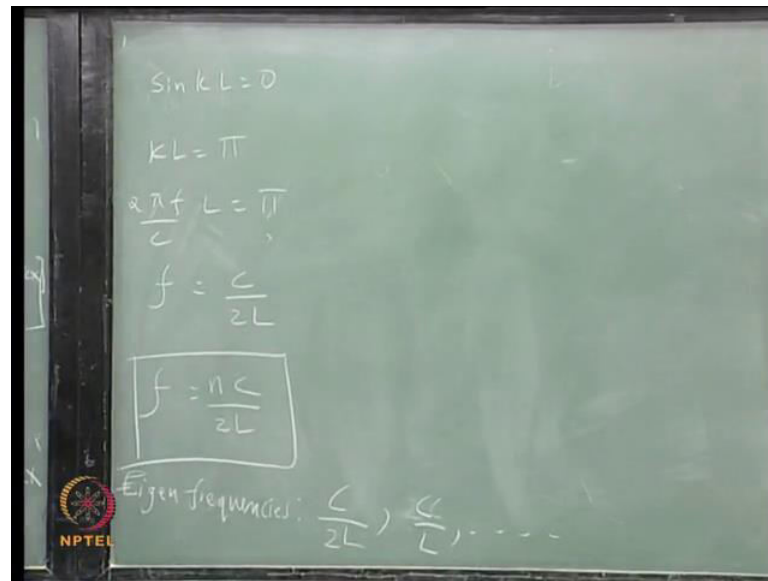 sin kL = 0
kL = π
2πf/c L = π
f = c/2L
f = nc/2L
Eigen frequencies: c/2L, c/L, . . . .
NPTEL